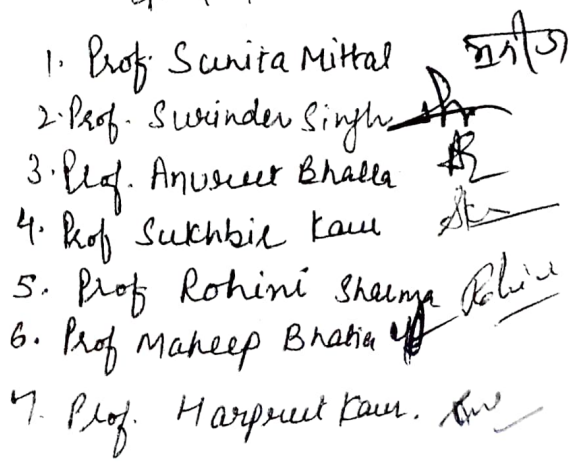 1. Prof. Sunita Mittal
2. Prof. Surinder Singh
3. Prof. Anureet Bhalla
4. Prof Sukhbir Kaur
5. Prof Rohini Sharma Rohini
6. Prof Maheep Bhatia
7. Prof. Harpreet Kaur.